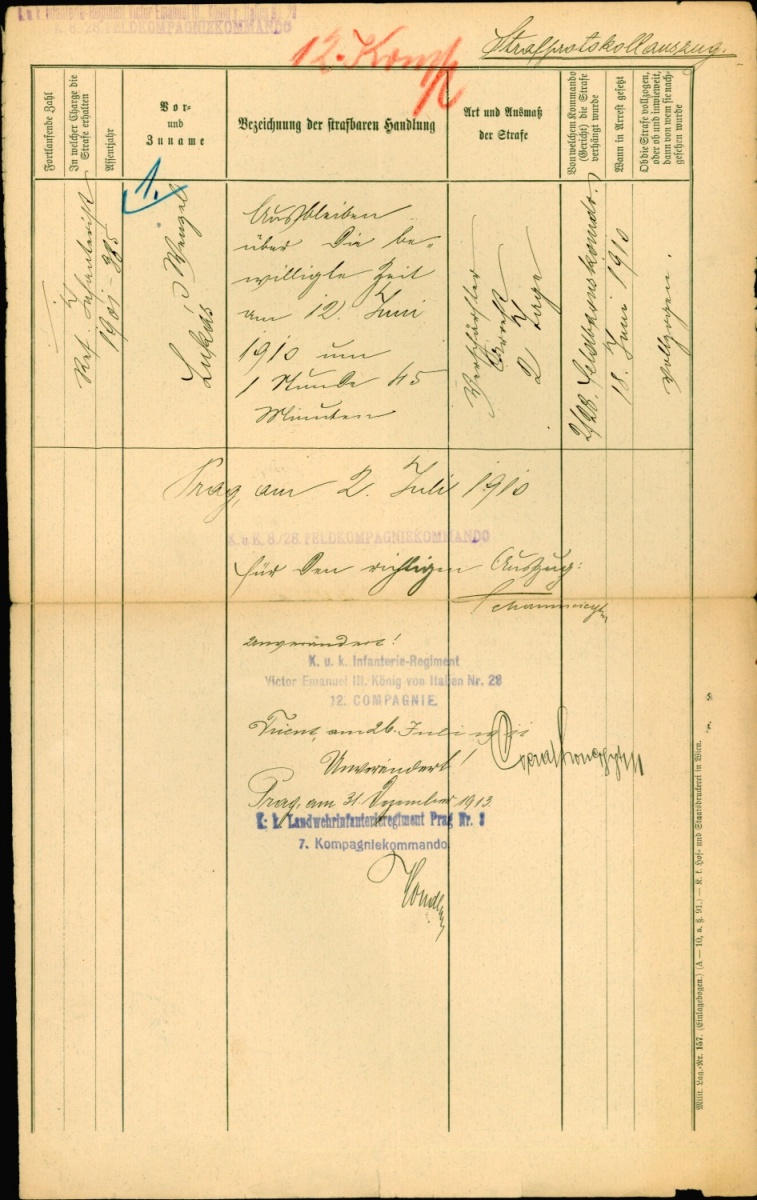 K. u. k. Infanterie-Regiment Victor Emanuel III. König v. Italien N. 28
K. 8./28. FELDKOMPAGNIEKOMMANDO
12. Komp
Strafprotokollauszug.
Fortlaufende Zahl
In welcher Charge die
Strafe erhalten
Assentjahr
Vor-
und
Zuname
Bezeichnung der strafbaren Handlung
Art und Ausmaß
der Strafe
Von welchem Kommando
(Gericht) die Strafe
verhängt wurde
Wann in Arrest gesetzt
Ob die Strafe vollzogen,
oder ob und inwieweit,
dann von wem sie nach-
gesehen wurde
1.
Res. Infanterist
1901 - 385
Lukás Wenzel
Ausbleiben
über die be-
willigte Zeit
am 12. Juni
1910 um
1 Stunde 45
Minuten
Verschärfter
Arrest
2 Tage
2/28. Feldbaonskomdo.
18. Juni 1910
vollzogen.
Prag, am 2. Juli 1910
K. u. K. 8./28. FELDKOMPAGNIEKOMMANDO
für den richtigen Auszug:
Unverändert!
K. u. k. Infanterie-Regiment
Victor Emanuel III. König von Italien Nr. 28
12. COMPAGNIE.
Trient, am 26. Juli
Unverändert!
Prag, am 31. Dezember 1913.
K. k. Landwehrinfanterieregiment Prag Nr. 8
7. Kompagniekommando.
Milit. Lag.-Nr. 157. (Einlagebogen.) (A — 10, a, §. 91.) — K. k. Hof- und Staatsdruckerei in Wien.